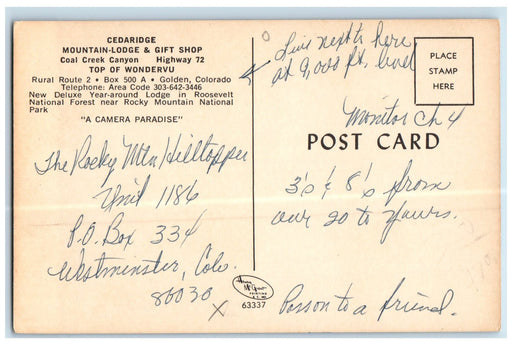 CEDARIDGE
MOUNTAIN-LODGE & GIFT SHOP
Coal Creek Canyon Highway 72
TOP OF WONDERVU
Rural Route 2 • Box 500 A • Golden, Colorado
Telephone: Area Code 303-642-3446
New Deluxe Year-around Lodge in Roosevelt
National Forest near Rocky Mountain National
Park
"A CAMERA PARADISE"
Live next to here
at 9,000 ft. level
PLACE
STAMP
HERE
Monitor Ch 4
POST CARD
The Rocky Mtn Hilltopper
Unit 1186
P.O. Box 334
Westminster, Colo.
80030
X
3's & 8's from
our 20 to yours.
63337
Passon to a friend.